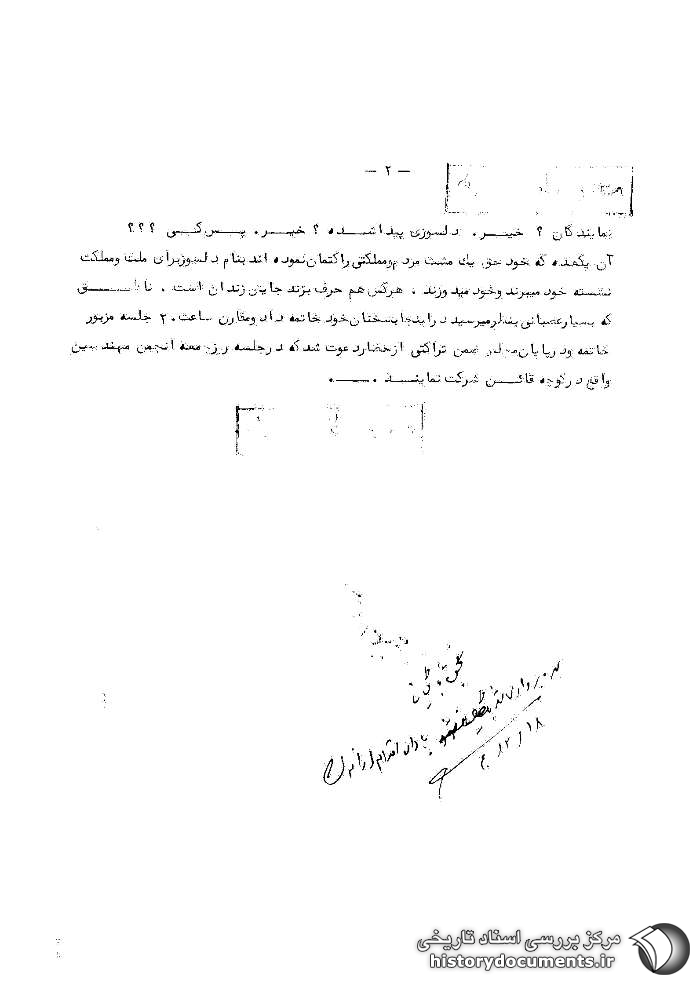 — ۲ —
نمایندگان ؟ خیـــر. دلسوزی پیدا شده ؟ خیـر. پـس کـی ؟؟؟
آن یکعده که خود حق یك مشت مردم ومملکتی را کتمان نموده اند بنام دلسوز برای ملت ومملکت
نشسته خود میبرند وخود میدوزند . هرکس هم حرف بزند جایش زندان است . ناطـــق
که بسیار عصبانی بنظر میرسید در اینجا بسخنان خود خاتمه داد ومقارن ساعت ۲۰ جلسه مزبور
خاتمه ودر پایان ضمن تراکتی از حضار دعوت شد که در جلسه روز جمعه انجمن مهندسین
واقع در کوچه قائـــن شرکت نماینـــد . ـــ .
۱۲/۱۸
مرکز بررسی اسناد تاریخی
historydocuments.ir